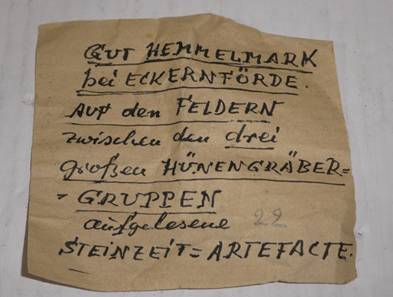 GUT HEMMELMARK
bei ECKERNFÖRDE.
AUF den FELDERN
zwischen den drei
großen HÜNENGRÄBER=
= GRUPPEN
aufgelesene 22
STEINZEIT=ARTEFACTE.